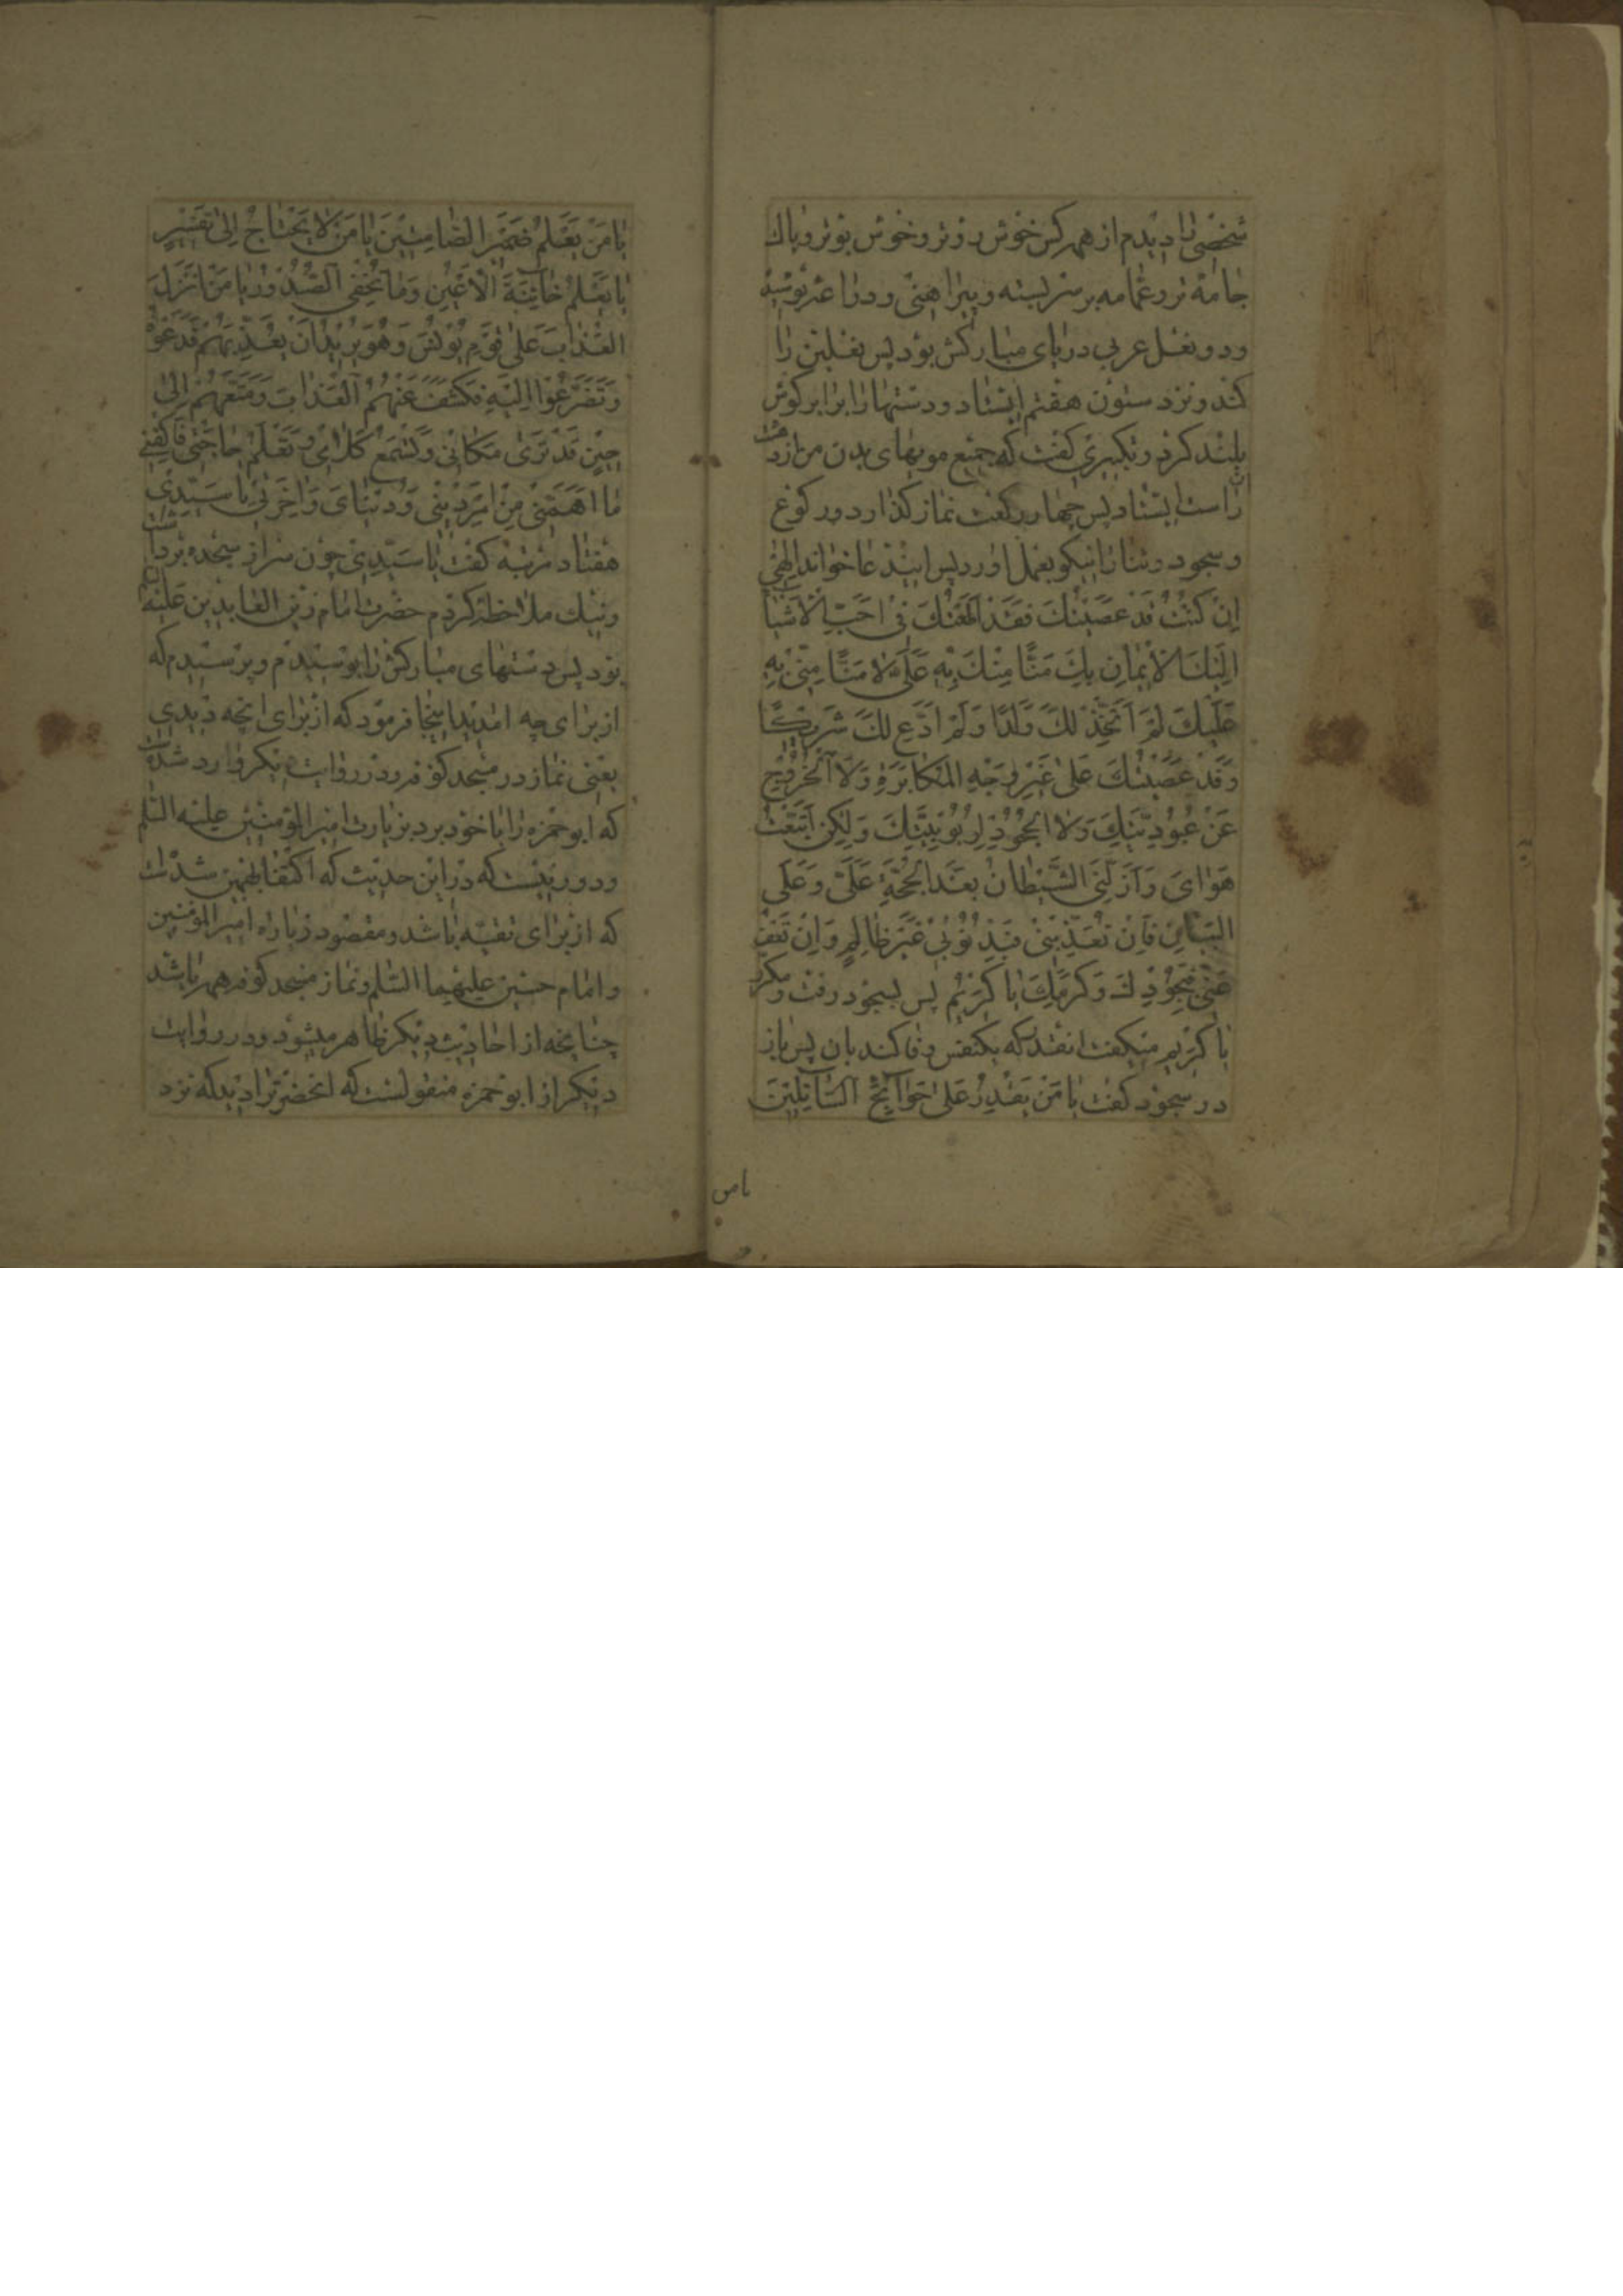 شخصی را دیدم از همه کس خوش روتر و خوش بوتر و پاك
جامه تر و عمامه بر سر بسته و پیراهنی و دراعه پوشیده
و دو نعل عربی در پای مبارکش بود پس نعلین را
کند و نزد ستون هفتم ایستاد و دستها را برابر گوش
بلند کرد و تکبیری گفت که جمیع مویهای بدن من از دهشت ان
راست ایستاد پس چهار رکعت نماز گذارد و رکوع
و سجود و ثنا را نیکو بعمل اورد پس این دعا خواند اِلهٖی
اِنْ كُنْتُ قَدْ عَصَيْتُكَ فَقَدْ اَطَعْتُكَ فِي اَحَبِّ الْاَشْيآءِ
اِلَيْكَ الْاِيمٰانِ بِكَ مَنًّا مِنْكَ بِهِ عَلَيَّ لا مَنًّا مِنّي بِهِ
عَلَيْكَ لَمْ اَتَّخِذْ لَكَ وَلَدًا وَلَمْ اَدَّعِ لَكَ شَرِيْكًا
وَقَدْ عَصَيْتُكَ عَلىٰ غَيْرِ وَجْهِ الْمُكابَرَةِ وَلَا الْخُرُوْجِ
عَنْ عُبُوْدِيَّتِكَ وَلا الْجُحُوْدِ لِرُبُوْبِيَّتِكَ وَلٰكِنِ اتَّبَعْتُ
هَوٰاىَ وَاَزَلَّنِي الشَّيْطانُ بَعْدَ الْحُجَّةِ عَلَيَّ وَعَلَى
الْبَيانِ فَاِنْ تُعَذِّبْنِيْ فَبِذُنُوْبِيْ غَيْرَ ظالِمٍ وَاِنْ تَعْفُ
عَنِّي فَبِجُوْدِكَ وَكَرَمِكَ يا كَرِيْمُ پس بسجود رفت و مکرر
یا کَرِیمُ میگفت انقدر که یکنفس وفا کند بان پس باز
در سجود گفت یا مَنْ یَقْدِرُ عَلىٰ حَوآئِجِ السّآئِلِيْنَ
یا من
يا مَنْ يَعْلَمُ ضَمِيْرَ الصّامِتِيْنَ يا مَنْ لا يَحْتاجُ اِلَى تَفْسِيْرٍ
يا يَعْلَمُ خآئِنَةَ الْاَعْيُنِ وَمٰا تُخْفِي الصُّدُوْرُ يا مَنْ اَنْزَلَ
الْعَذابَ عَلىٰ قَوْمِ يُوْنُسَ وَهُوَ يُرِيْدُ اَنْ يُعَذِّبَهُمْ فَدَعَوْهُ
وَتَضَرَّعُوْا اِلَيْهِ فَكَشَفَ عَنْهُمُ الْعَذابَ وَمَتَّعَهُمْ اِلىٰ
حِيْنٍ قَدْ تَرىٰ مَكانِيْ وَتَسْمَعُ كَلامِيْ وَتَعْلَمُ حاجَتِيْ فَاكْفِنِيْ
ما اَهَمَّنِيْ مِنْ اَمْرِ دِيْنِيْ وَدُنْيٰايَ وَاٰخِرَتِيْ يا سَيِّدِيْ
هفتاد مرتبه گفت یا سَیِّدِیْ چون سر از سجده برداشت
و نیك ملاحظه کردم حضرت امام زین العابدین علیه السلام
بود پس دستهای مبارکش را بوسیدم و پرسیدم که
از برای چه امدید اینجا فرمود که از برای انچه دیدی
یعنی نماز در مسجد کوفه و در روایت دیگر وارد شده است
که ابو حمزه را با خود برد بزیارت امیر المؤمنین علیه السلم
و دور نیست که در این حدیث که اکتفا بهمین شد ان
که از برای تقیّه باشد و مقصود زیاره امیر المؤمنین
و امام حسین علیهما السّلم و نماز مسجد کوفه همه باشد
چنانچه از احادیث دیگر ظاهر میشود و در روایت
دیگر از ابو حمزه منقولست که انحضرت را دید که نزد